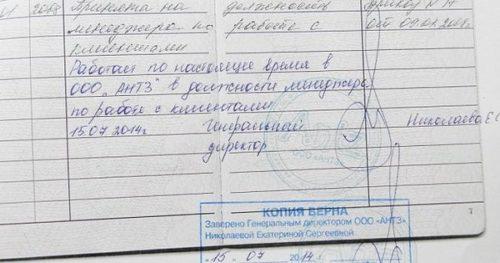 2013 Принята на должность Приказ №
менеджера по работе с от
клиентами
Работает по настоящее время в
ООО "АНТЗ" в должности менеджера
по работе с клиентами
15.07.2014г. Генеральный Николаева Е.С
директор
ООО «АНТЗ»
КОПИЯ ВЕРНА
Заверено Генеральным директором ООО «АНТЗ»
Николаевой Екатериной Сергеевной
15. 07 2014г.